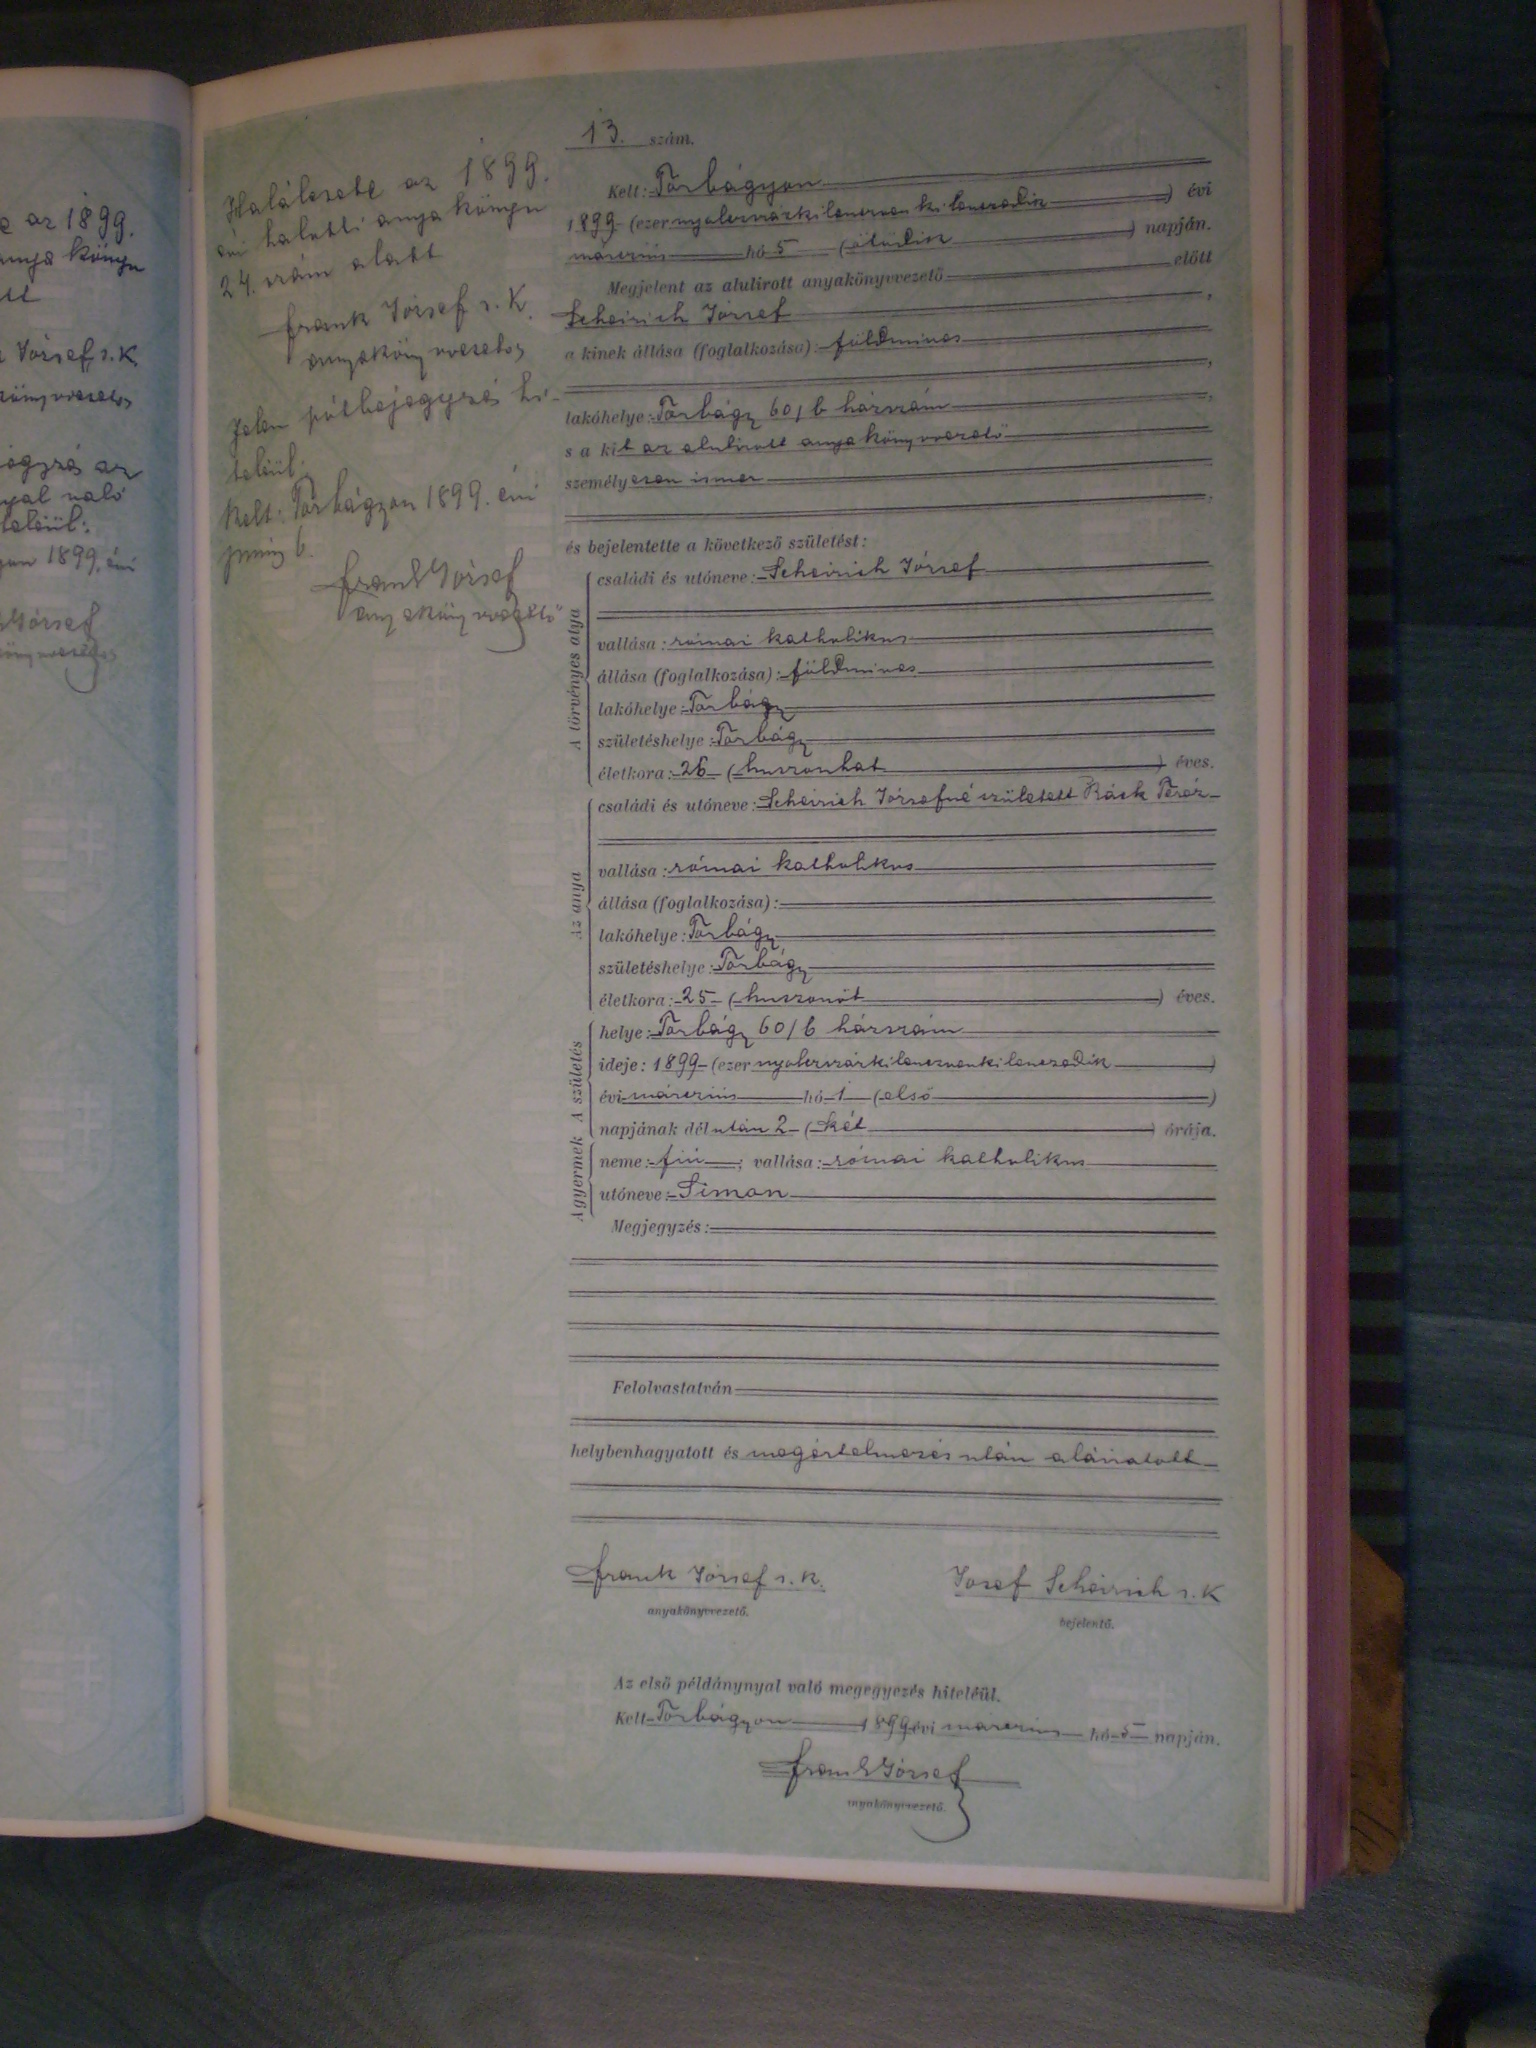 e az 1899.
anya könyv
att
József s. K
könyvvezető
egyzés az
yal való
teléül:
yon 1899. évi
József
Halálesete az 1899.
évi halotti anya könyv
24. szám alatt
Frank József s. K.
anyakönyvvezető
Jelen pótbejegyzés hi-
teléül:
Kelt: Torbágyon 1899. évi
június 6.
Frank József
anyakönyvvezető
13. szám.
Kelt: Torbágyon
1899 (ezer nyolczszázkilenczvenkilenczedik ) évi
márczius hó 5 (ötödik ) napján.
Megjelent az alulirott anyakönyvvezető előtt
Scheirich József,
a kinek állása (foglalkozása): földmives
,
lakóhelye: Torbágy 60/b házszám,
s a kit az alulirott anyakönyvvezető
személyesen ismer
,
és bejelentette a következő születést:
A törvényes atya
családi és utóneve: Scheirich József
vallása: római katholikus
állása (foglalkozása): földmives
lakóhelye: Torbágy
születéshelye: Torbágy
életkora: 26 (huszonhat ) éves.
Az anya
családi és utóneve: Scheirich Józsefné született Ráck Teréz
vallása: római katholikus
állása (foglalkozása):
lakóhelye: Torbágy
születéshelye: Torbágy
életkora: 25 (huszonöt ) éves.
A születés
helye: Torbágy 60/b házszám
ideje: 1899 (ezer nyolczszázkilenczvenkilenczedik )
évi márczius hó 1 (első )
napjának délután 2 (két ) órája.
A gyermek
neme: fiú; vallása: római katholikus
utóneve: Simon
Megjegyzés:
Felolvastatván
helybenhagyatott és megértelmezés után aláiratott
Frank József s. k.
anyakönyvvezető.
Josef Scheirich s. K
bejelentő.
Az első példánynyal való megegyezés hiteléül.
Kelt Torbágyon 1899 évi márczius hó 5 napján.
Frank József
anyakönyvvezető.